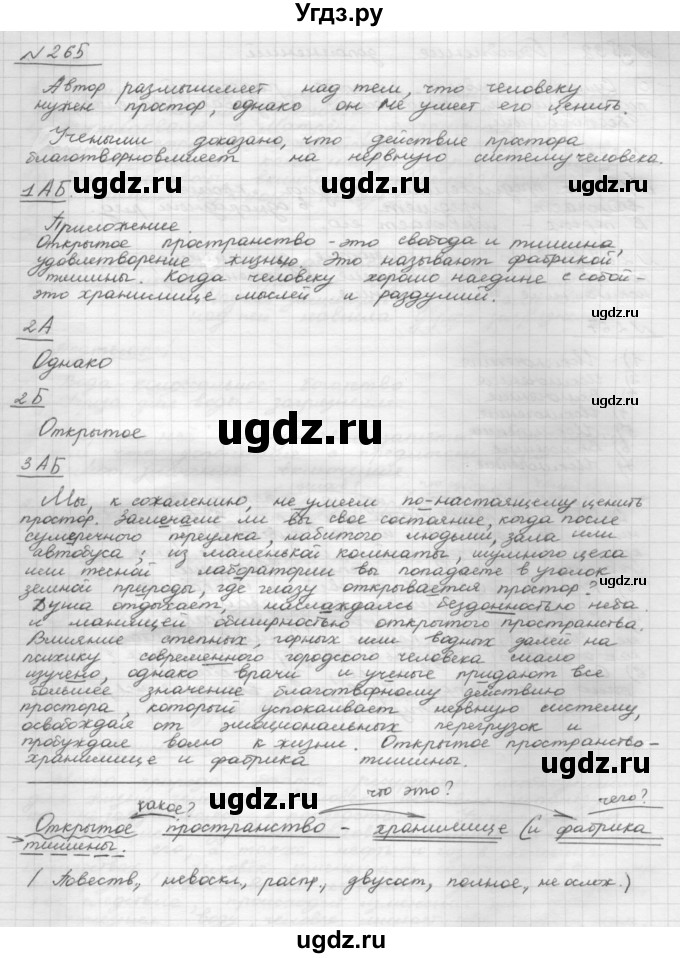 Угдз.ру
N 265
Автор размышляет над тем, что человеку
нужен простор, однако он не умеет его ценить.
Учеными доказано, что действие простора
благотворно влияет на нервную систему человека.
1АБ.
Приложение.
Открытое пространство - это свобода и тишина,
удовлетворение жизнью. Это называют фабрикой
тишины. Когда человеку хорошо наедине с собой -
это хранилище мыслей и раздумий.
2А
Однако
2Б
Открытое
3АБ
Мы, к сожалению, не умеем по-настоящему ценить
простор. Замечали ли вы свое состояние, когда после
сумеречного переулка, набитого людьми, зала или
автобуса; из маленькой комнаты, шумного цеха
или тесной лаборатории вы попадаете в уголок
земной природы, где глазу открывается простор?
Душа отдыхает, наслаждаясь бездонностью неба
и манящей обширностью открытого пространства.
Влияние степных, горных или водных далей на
психику современного городского человека мало
изучено, однако врачи и ученые придают все
большее значение благотворному действию
простора, который успокаивает нервную систему,
освобождая от эмоциональных перегрузок и
пробуждая волю к жизни. Открытое пространство -
хранилище и фабрика тишины.
какое? что это? чего?
Открытое пространство - хранилище (и фабрика
тишины.
(Повеств., невоскл., распр., двусост., полное, не ослож.)
ugdz.ru
ugdz.ru
ugdz.ru
ugdz.ru
ugdz.ru
ugdz.ru
ugdz.ru
ugdz.ru
ugdz.ru
ugdz.ru
ugdz.ru
ugdz.ru
ugdz.ru
ugdz.ru